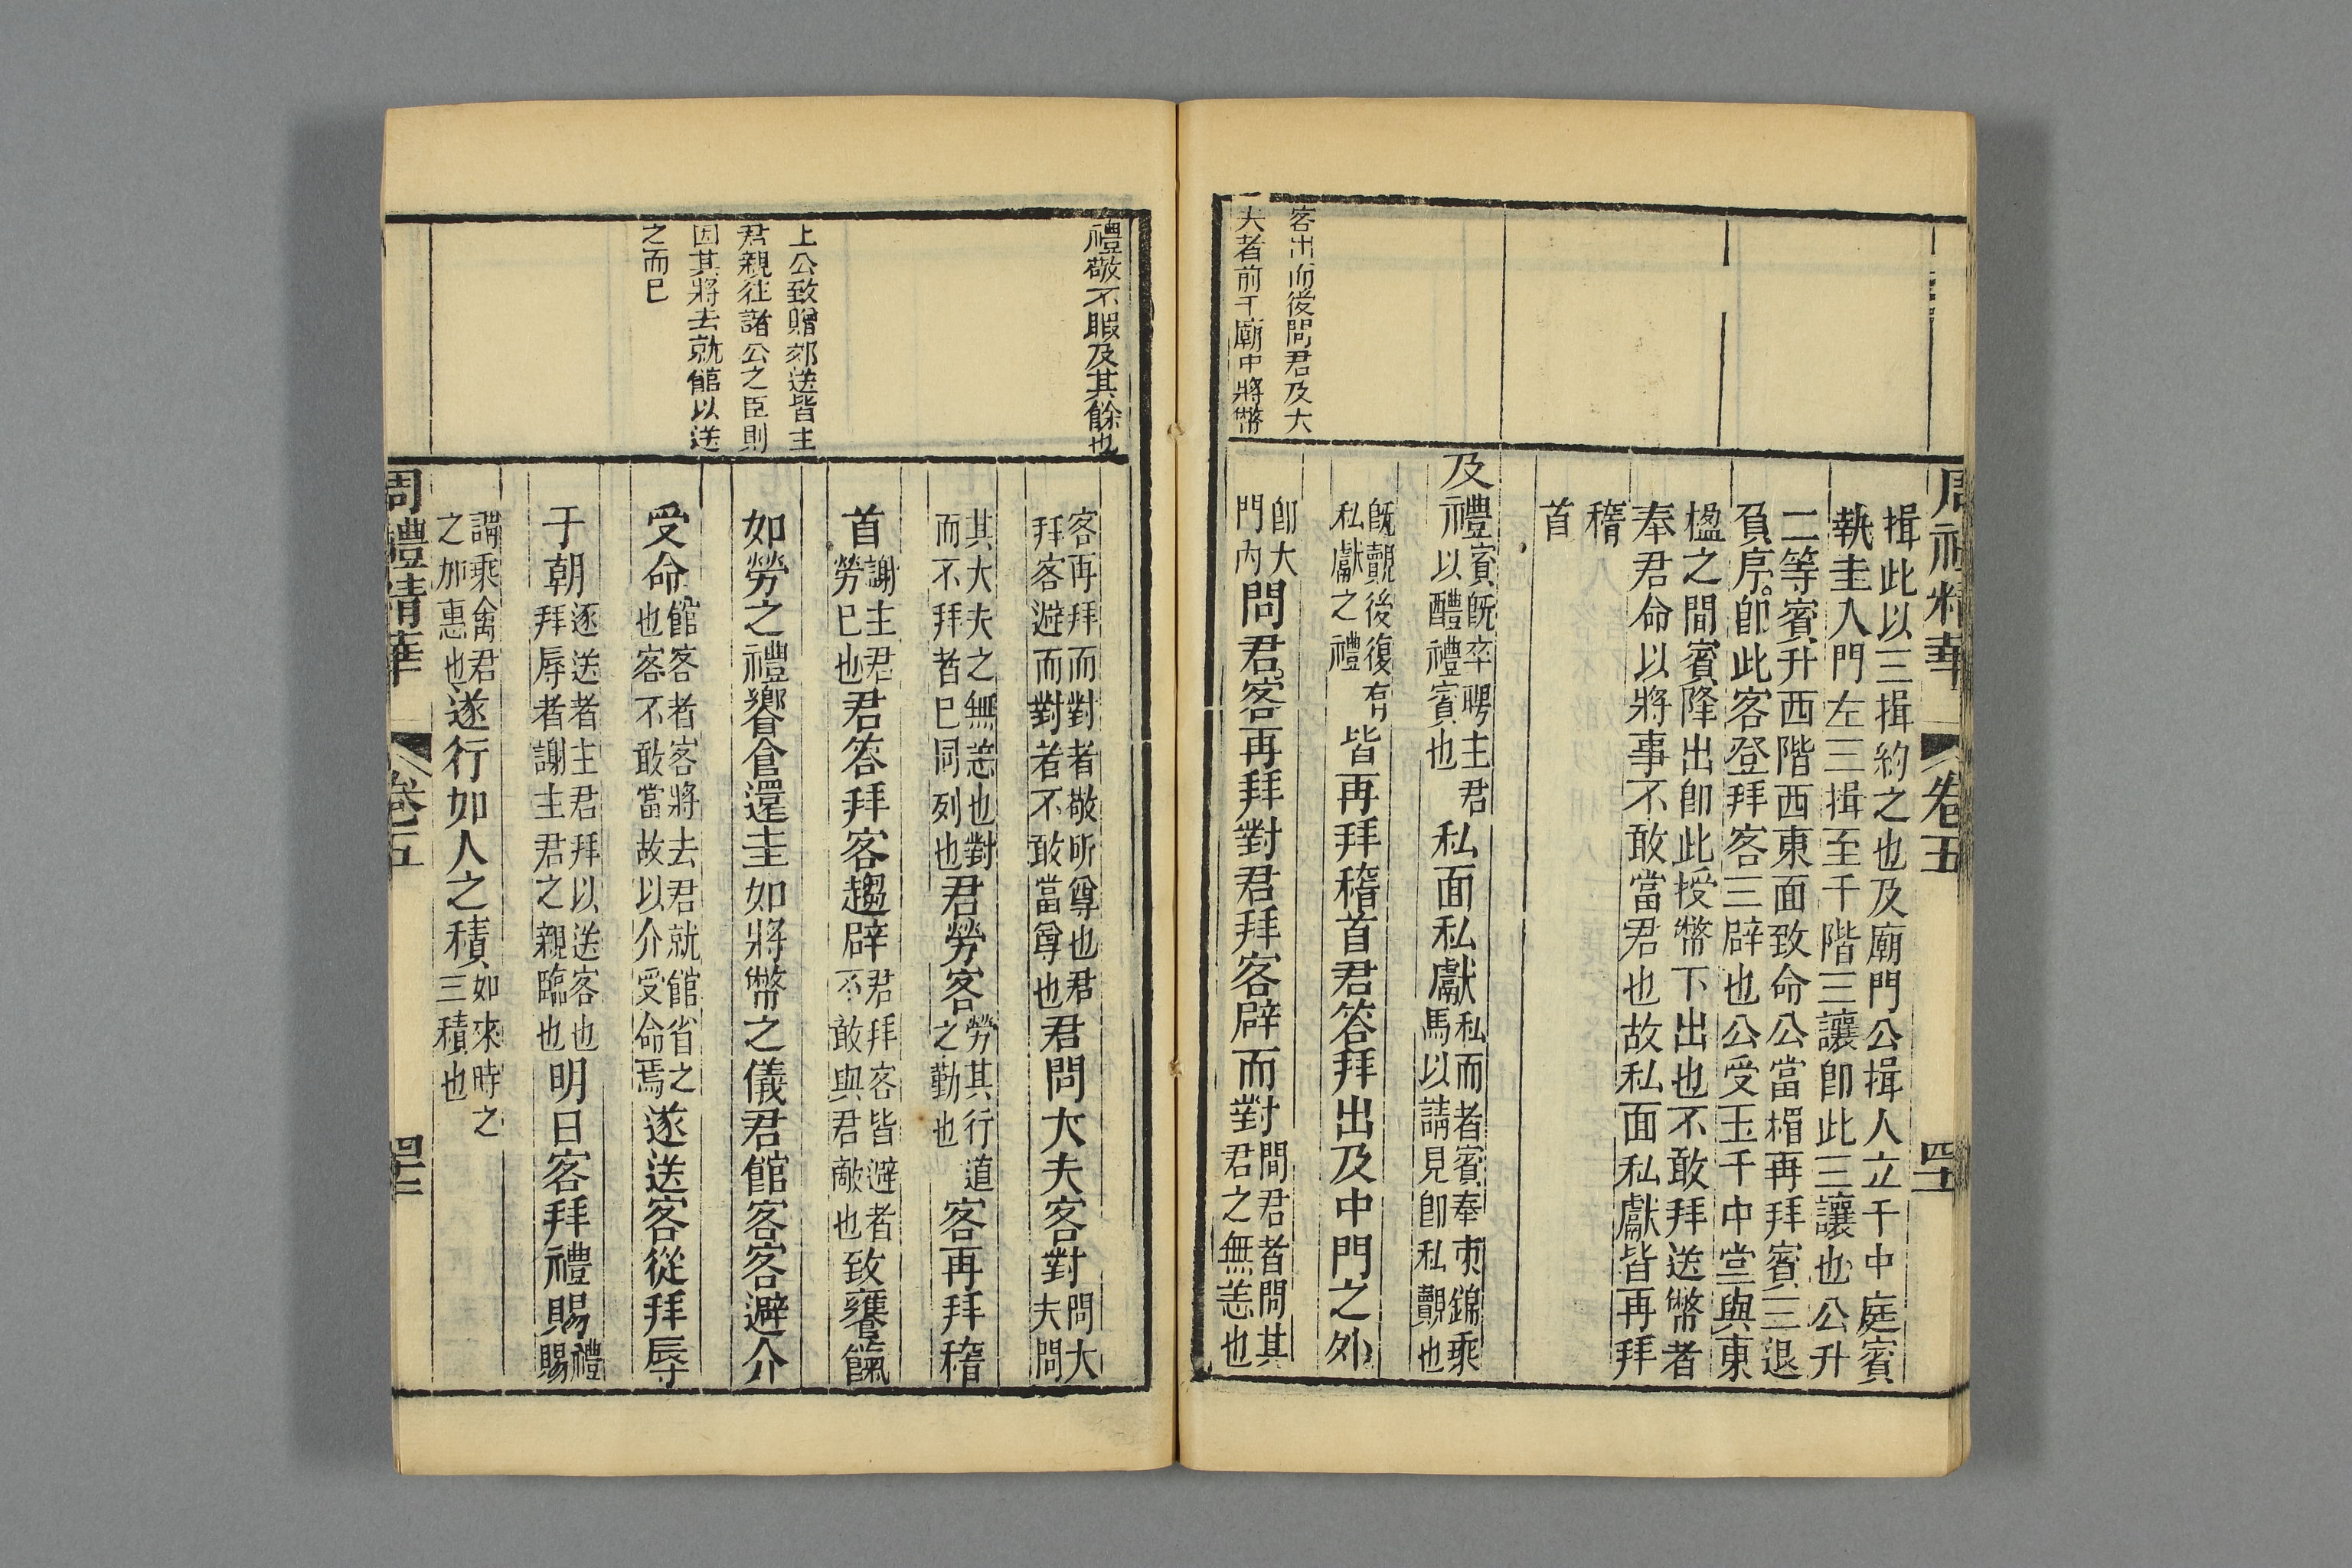 周禮精華 卷五 四十一
客出而後問君及大
夫者前于廟中將幣
揖此以三揖約之也及廟門公揖人立于中庭賓
執圭入門左三揖至于階三讓卽此三讓也公升
二等賓升西階西東面致命公當楣再拜賓三退
負序卽此客登拜客三辟也公受玉于中堂與東
楹之間賓降出卽此授幣下出也不敢拜送幣者
奉君命以將事不敢當君也故私面私獻皆再拜
稽
首
及禮賓旣卒聘主君以醴禮賓也私面私獻私而者賓奉束錦乘馬以請見卽私覿也
旣覿後復有私獻之禮皆再拜稽首君答拜出及中門之外
卽大門內問君客再拜對君拜客辟而對問君者問其君之無恙也
禮敬不暇及其餘也
上公致贈郊送皆主
君親往諸公之臣則
因其將去就館以送
之而已
客再拜而對者敬所尊也君拜客避而對者不敢當尊也君問大夫客對問大夫問
其大夫之無恙也對而不拜者已同列也君勞客勞其行道之勤也客再拜稽
首謝主君勞已也君答拜客趨辟君拜客皆避者不敢與君敵也致饔餼
如勞之禮饗食還圭如將幣之儀君館客客避介
受命館客者客將去君就館省之也客不敢當故以介受命焉遂送客從拜辱
于朝逐送者主君拜以送客也拜辱者謝主君之親臨也明日客拜禮賜禮賜
謂乘禽君之加惠也遂行如人之積如來時之三積也
周禮精華 卷五 四十二